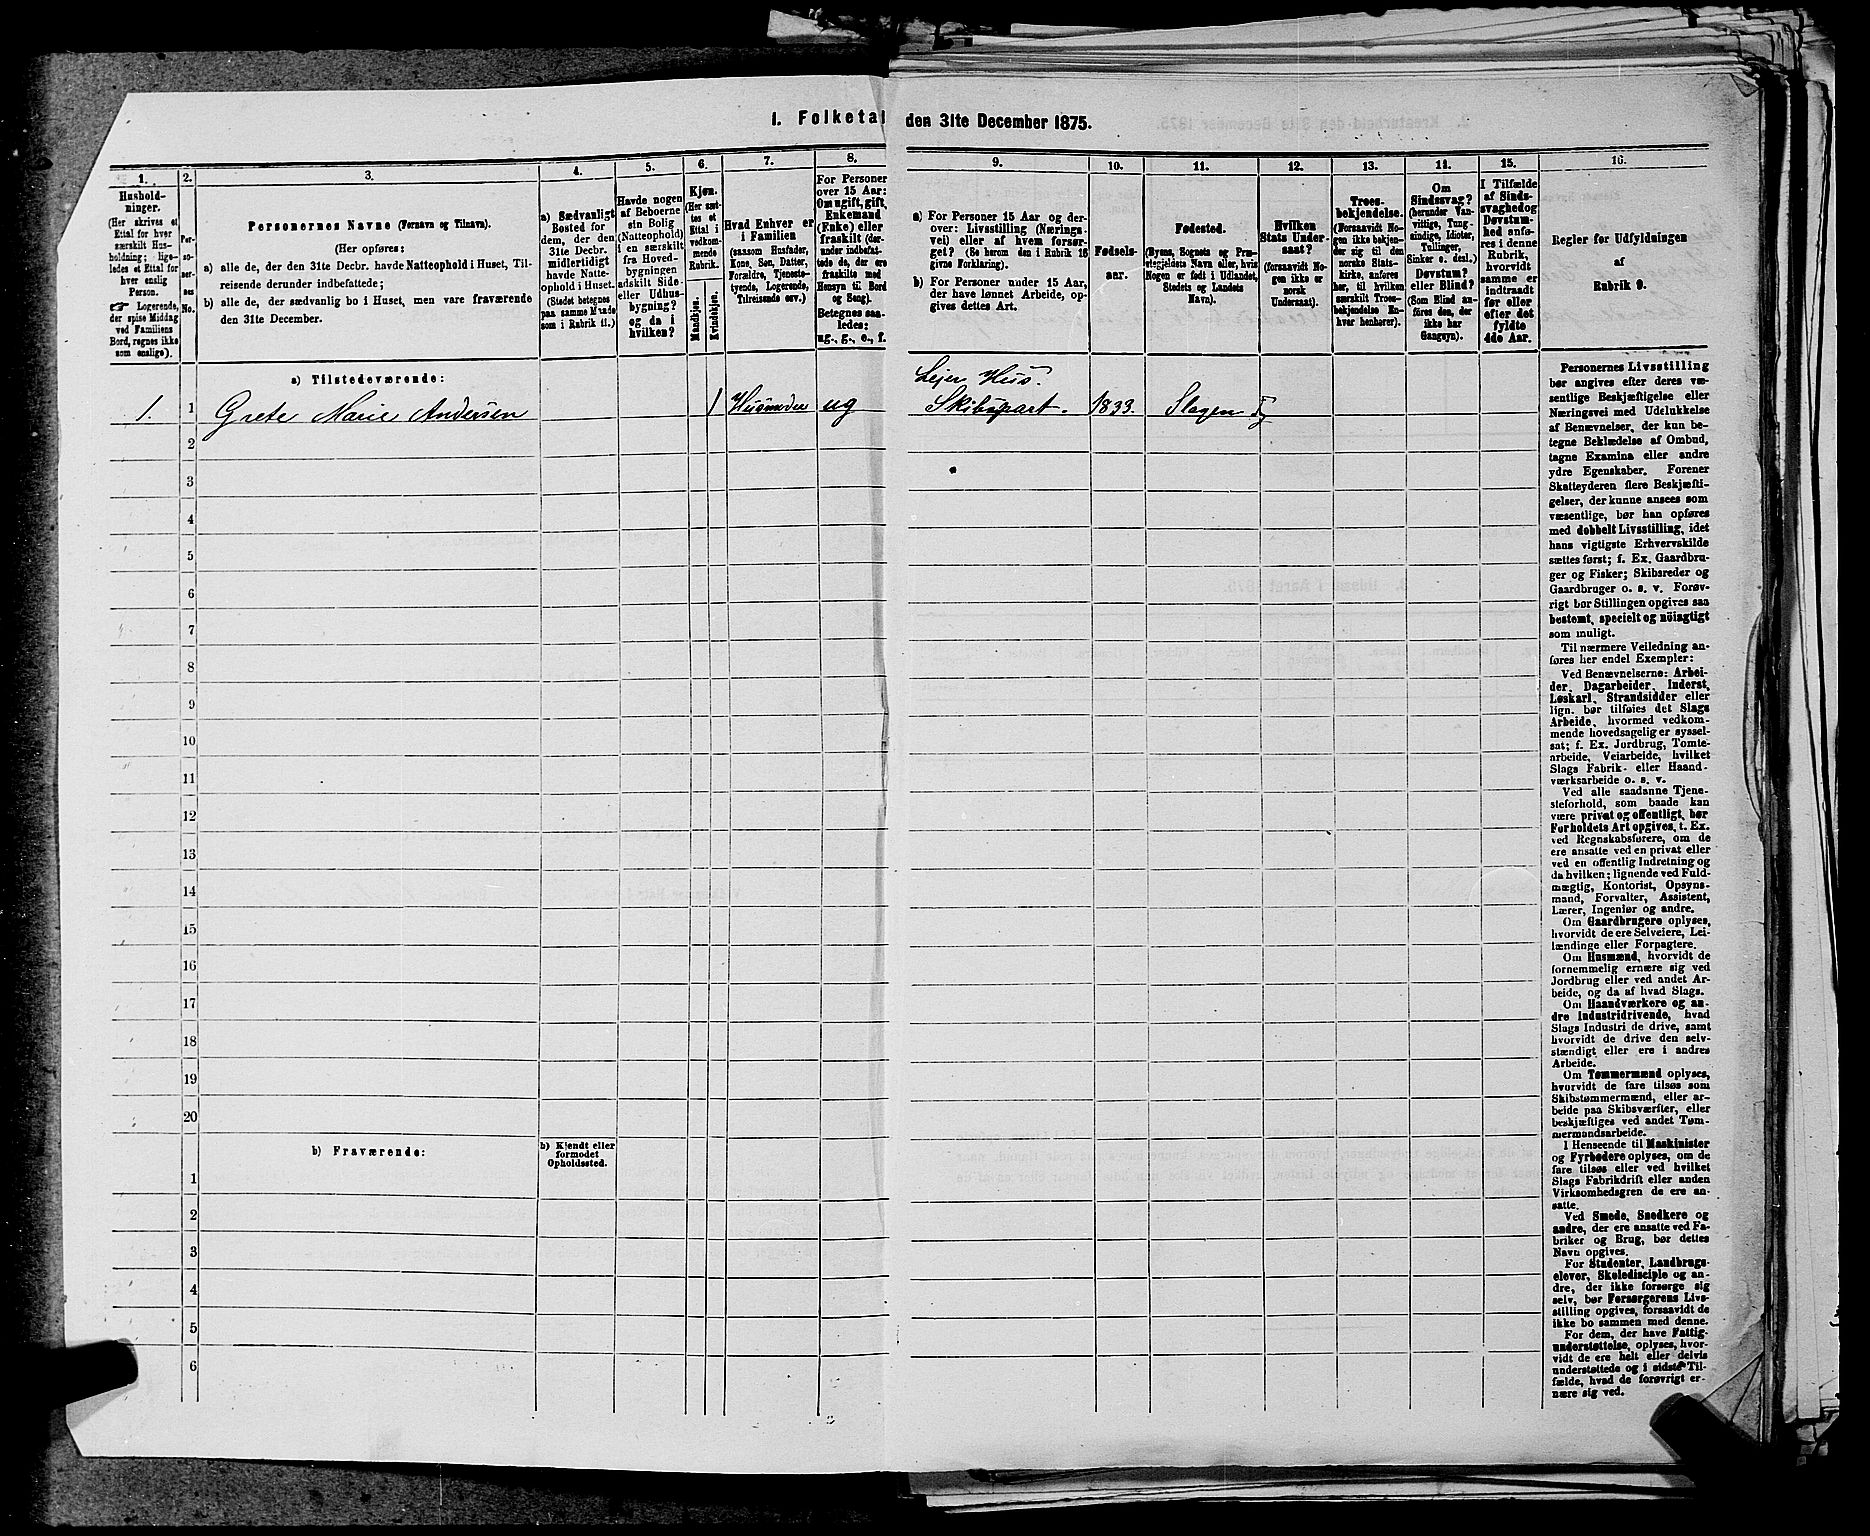 1. Folketal den 31te December 1875.
1.
Hushold-
ninger.
(Her skrives et
Ettal for hver
særskilt Hus-
holdning; lige-
ledes et Ettal for
hver enslig
Person.
☞ Logerende,
der spise Middag
ved Familiens
Bord, regnes ikke
som enslige).
2.
Per-
so-
ner-
nes
No.
3.
Personernes Navne (Fornavn og Tilnavn).
(Her opføres:
a) alle de, der den 31te Decbr. havde Natteophold i Huset, Til-
reisende derunder indbefattede;
b) alle de, der sædvanlig bo i Huset, men vare fraværende
den 31te December.
4.
a) Sædvanligt
Bosted for
dem, der den
31te Decbr.
midlertidigt
havde Natte-
ophold i Huset.
(Stedet betegnes
paa samme Maade
som i Rubrik 11.)
5.
Havde nogen
af Beboerne
sin Bolig
(Natteophold)
i en særskilt
fra Hoved-
bygningen
adskilt Side-
eller Udhus-
bygning?
og da i
hvilken?
6.
Kjøn.
(Her sæt-
tes et
Ettal i
vedkom-
mende
Rubrik.
Mandkjøn.
Kvindekjøn.
7.
Hvad Enhver er
i Familien
(saasom Husfader,
Kone, Søn, Datter,
Forældre, Tjeneste-
tyende, Logerende,
Tilreisende osv.)
8.
For Personer
over 15 Aar:
Om ugift, gift,
Enkemand
(Enke) eller
fraskilt (der-
under indbefat-
tede de, der ere
fraskilte med
Hensyn til Bord
og Seng).
Betegnes saa-
ledes:
ug., g., e., f.
9.
a) For Personer 15 Aar og der-
over: Livsstilling (Nærings-
vei) eller af hvem forsør-
get? (Se herom den i Rubrik 16
givne Forklaring).
b) For Personer under 15 Aar,
der have lønnet Arbeide, op-
gives dettes Art.
10.
Fødsels-
aar.
11.
Fødested.
(Byens, Sognets og Præ-
stegjeldets Navn eller, hvis
Nogen er født i Udlandet,
Stedets og Landets
Navn).
12.
Hvilken
Stats Under-
saat?
(forsaavidt No-
gen ikke er
norsk
Undersaat).
13.
Troes-
bekjendelse.
(Forsaavidt No-
gen ikke bekjen-
der sig til den
norske Stats-
kirke, anføres
her, til hvilken
særskilt Troes-
bekjendelse En-
hver henhører).
14.
Om
Sindssvag?
(herunder Van-
vittige, Tung-
sindige, Idioter,
Tullinger,
Sinker o. desl.)
Døvstum?
eller Blind?
(Som Blind an-
føres den, der
ikke har
Gangsyn).
15.
I Tilfælde
af Sinds-
svaghed og
Døvstum-
hed anfø-
res i denne
Rubrik,
hvorvidt
samme er
indtraadt
før eller
efter det
fyldte
4de Aar.
16.
Regler for Udfyldningen
af
Rubrik 9.
a) Tilstedeværende:
Lejer Hus.
1. 1 Grete Marie Andersen 1 Husmoder ug Skibspart. 1833. Slagen
2
3
4
5
6
7
8
9
10
11
12
13
14
15
16
17
18
19
20
b) Fraværende:
b) Kjendt eller
formodet
Opholdssted.
1
2
3
4
5
6
Personernes Livsstilling
bør angives efter deres væ-
sentlige Beskjæftigelse eller
Næringsvei med Udelukkelse
af Benævnelser, der kun be-
tegne Beklædelse af Ombud,
tagne Examina eller andre
ydre Egenskaber. Forener
Skatteyderen flere Beskjæfti-
gelser, der kunne ansees som
væsentlige, bør han opføres
med dobbelt Livsstilling, idet
hans vigtigste Erhvervskilde
sættes først; f. Ex. Gaardbru-
ger og Fisker; Skibsreder og
Gaardbruger o. s. v. Forøv-
rigt bør Stillingen opgives saa
bestemt, specielt og nöiagtigt
som muligt.
Til nærmere Veiledning an-
føres her endel Exempler:
Ved Benævnelserne: Arbei-
der, Dagarbeider, Inderst,
Løskarl, Strandsidder eller
lign. bør tilføies det Slags
Arbeide, hvormed vedkom-
mende hovedsagelig er syssel-
sat; f. Ex. Jordbrug, Tomte-
arbeide, Veiarbeide, hvilket
Slags Fabrik- eller Haand-
værksarbeide o. s. v.
Ved alle saadanne Tjene-
steforhold, som baade kan
være privat og offentligt, bør
Forholdets Art opgives, t. Ex.
ved Regnskabsførere, om de
ere ansatte ved en privat eller
ved en offentlig Indretning og
da hvilken; lignende ved Fuld-
mægtig, Kontorist, Opsyns-
mand, Forvalter, Assistent,
Lærer, Ingeniør og andre.
Om Gaardbrugere oplyses,
hvorvidt de ere Selveiere, Lei-
lændinge eller Forpagtere.
Om Husmænd, hvorvidt de
fornemmelig ernære sig ved
Jordbrug eller ved andet Ar-
beide, og da af hvad Slags.
Om Haandværkere og an-
dre Industridrivende, hvad
Slags Industri de drive, samt
hvorvidt de drive den selv-
stændigt eller ere i andres
Arbeide.
Om Tømmermænd oplyses,
hvorvidt de fare tilsøs som
Skibstømmermænd, eller ar-
beide paa Skibsværfter, eller
beskjæftiges ved andet Tøm-
mermandsarbeide.
I Henseende til Maskinister
og Fyrbødere oplyses, om de
fare tilsøs eller ved hvilket
Slags Fabrikdrift eller anden
Virksomhedsgren de ere an-
satte.
Ved Smede, Snedkere og
andre, der ere ansatte ved Fa-
briker og Brug, bør dettes
Navn opgives.
For Studenter, Landbrugs-
elever, Skoledisciple og an-
dre, der ikke forsørge sig
selv, bør Forsørgerens Livs-
stilling opgives, forsaavidt de
ikke bo sammen med denne.
For dem, der have Fattig-
understøttelse, oplyses, hvor-
vidt de ere helt eller delvis
understøttede og i sidste Til-
fælde, hvad de forøvrigt er-
nære sig ved.